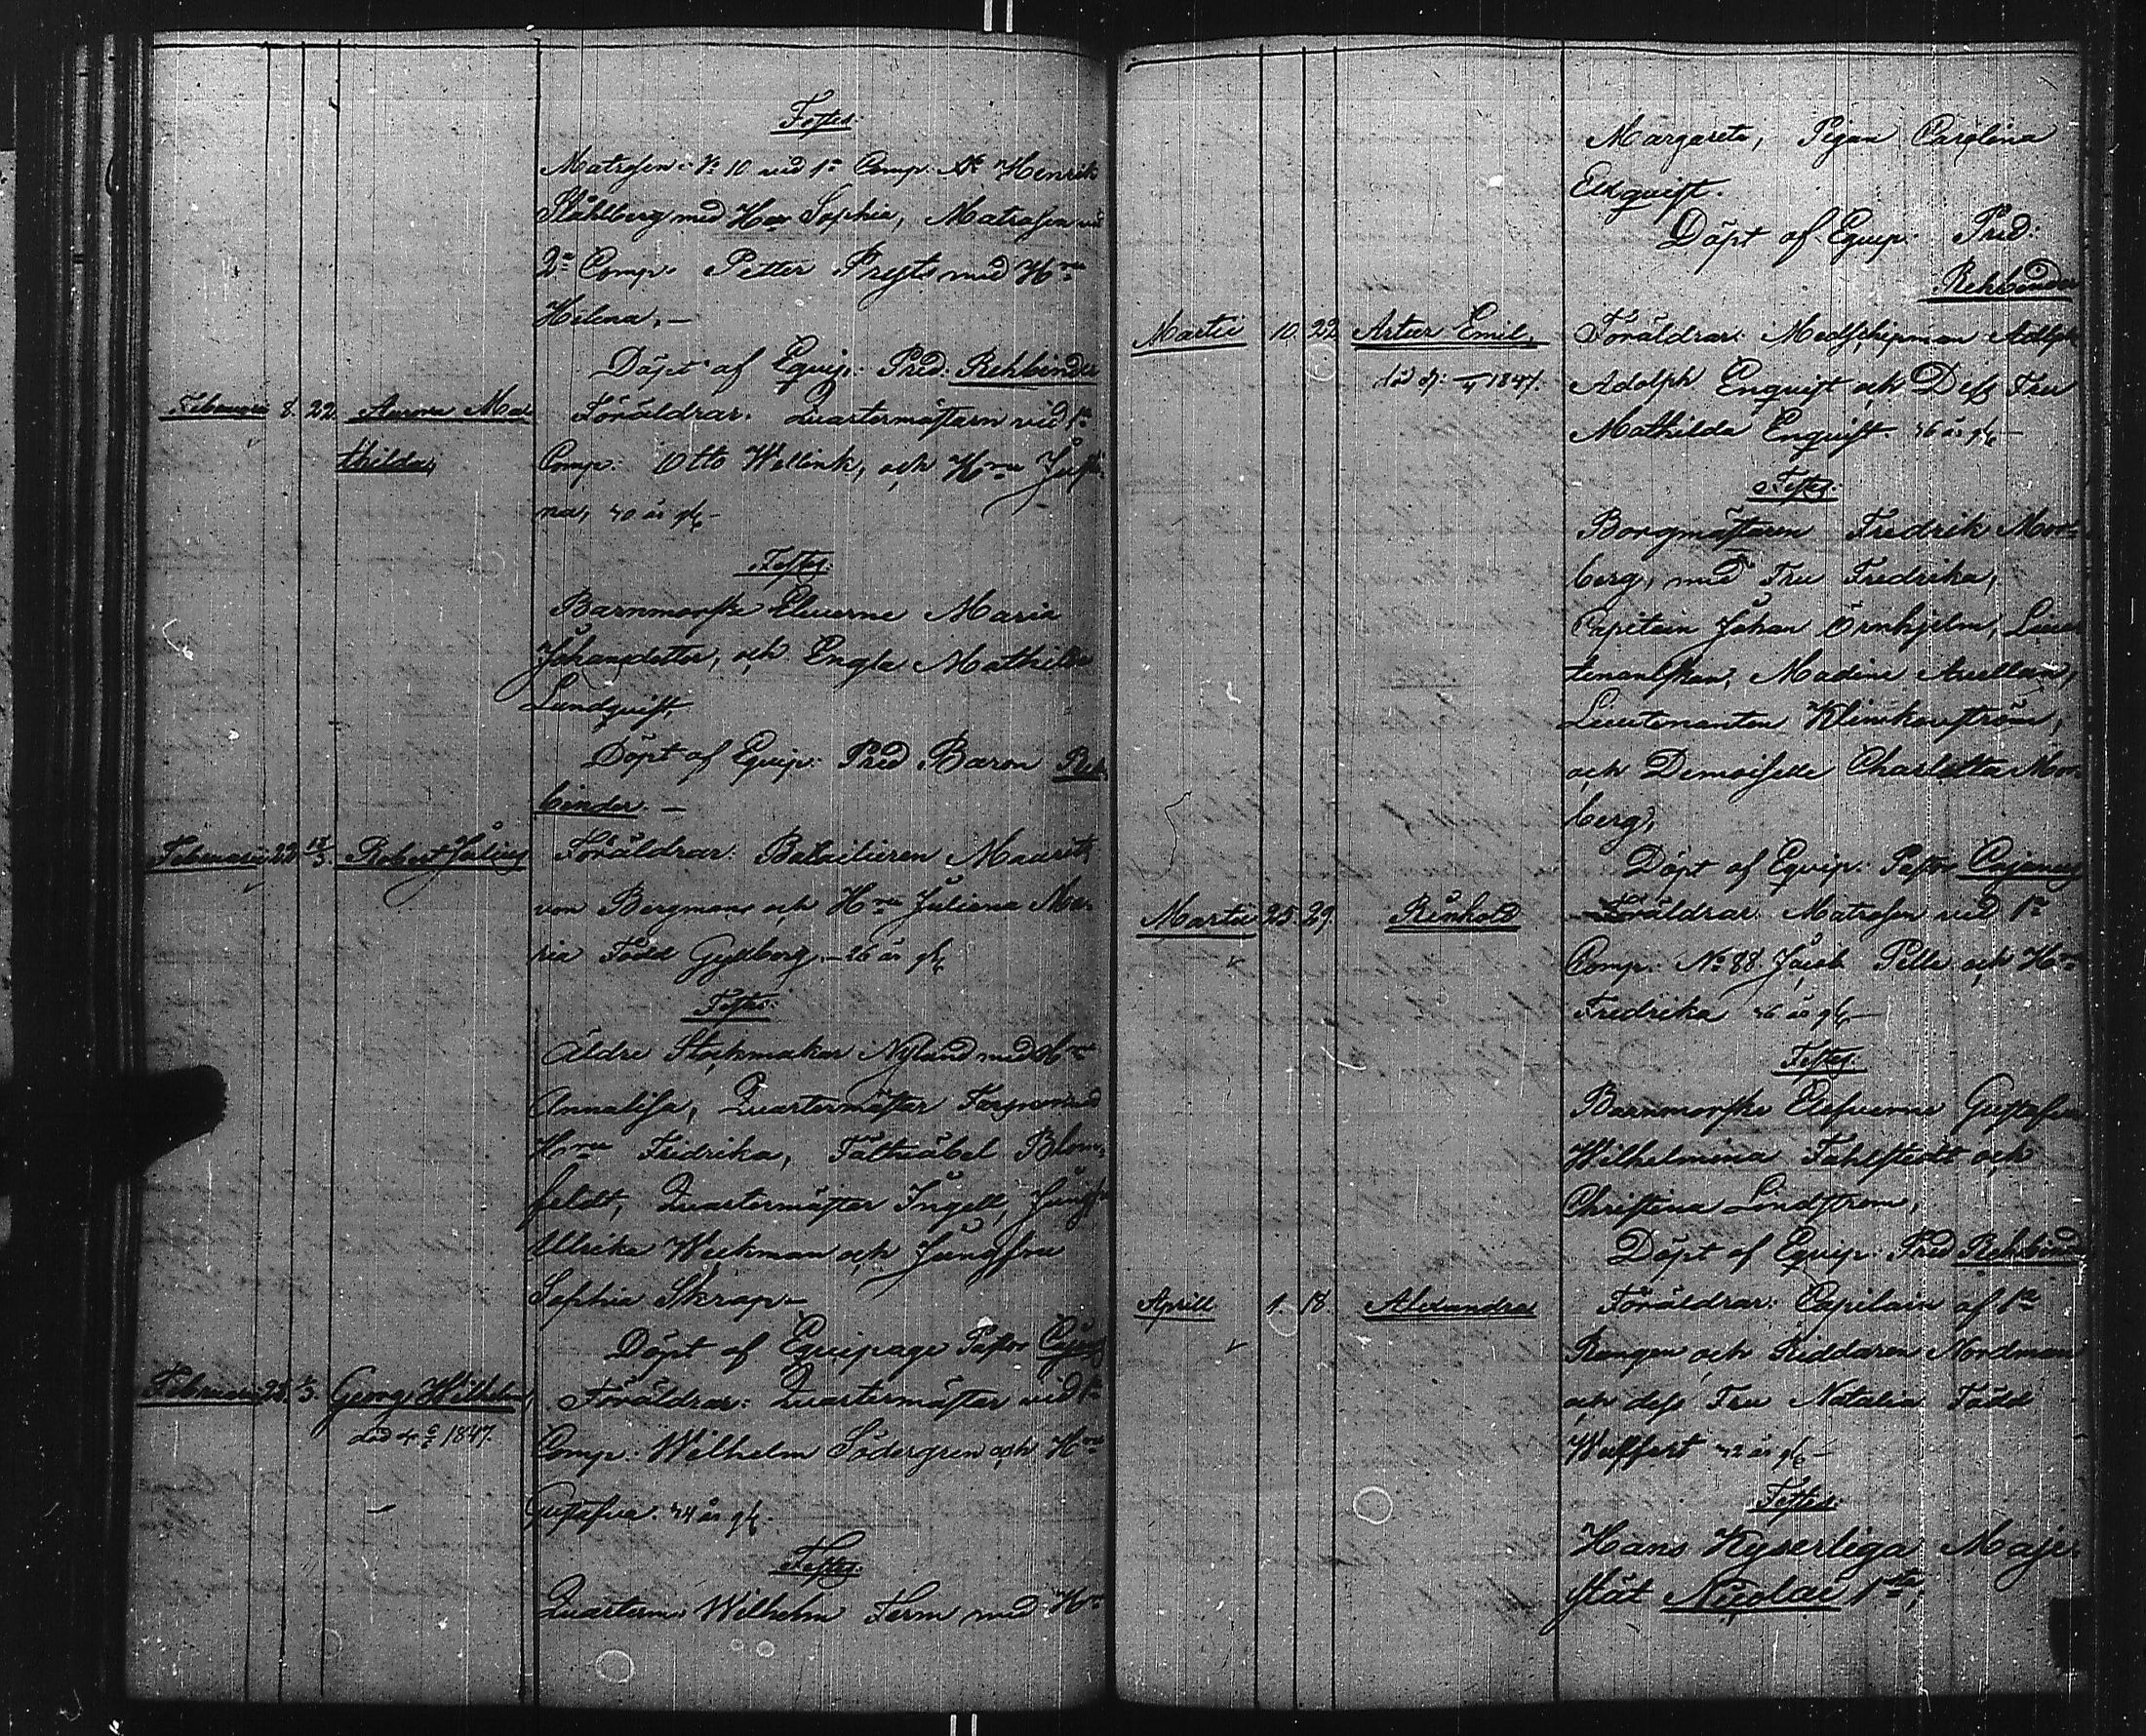 Testes.
Matrosen N:o 10 vid 1:a Comp. Henrik
Ståhlberg med H:ru Sophia, Matrosen vid
2:a Comp. Petter med H:ru
Helena, —
Döpt af Equip. Pred. Rehbinder
Februarii 8. 22. Aurora Ma- Föräldrar: Quartermästarn vid 1:a
thilda, Comp: Otto Wellink, och H:ru
na, 40 år gl. —
Testes.
Barnmorske Eleverne Maria
Johansdotter, och Engla Mathilda
Lundquist,
Döpt af Equip: Pred Baron Reh-
binder. —
Februarii 22 Robert Julius Föräldrar: Batailieren Maurits
von Bergman och H:ru Juliana Ma-
ria Född Gyllborg. — 26 år gl.
Testes.
Äldre Stockmakar Nyland med H:ru
Annalisa, Quartermästar med
H:ru Fredrika, Fältväbel Blom-
feldt, Quartermästar Ingell, Jungfr
Ulrika Weckman och Jungfru
Sophia Skrap —
Döpt af Equipage Pastor Cajanus
Februarii 25. Georg Wilhelm, Föräldrar: Quartermästar vid 1:a
död 1847. Comp: Wilhelm Södergren och H:ru
Gustafva. 24 år gl.
Testes.
Quarterm: Wilhelm Ferm med H:ru
Margareta, Pigan Carolina
Ekquist.
Döpt af Equip: Pred:
Rehbinder
Martii 10. 22. Artur Emil, Föräldrar: Medschipman Adolph
död d: 1847. Adolph Enquist och Dess Fru
Mathilda Enquist. 36 år gl. —
Testes.
Borgmästaren Fredrik Mor-
berg, med Fru Fredrika,
Capitain Johan Örnhjelm, Lieu-
tenantskan, Madine Arellan,
Lieutenanten Klinkowström,
och Demoiselle Charlotta Mor-
berg,
Döpt af Equip: Pastor Cajanus
Martii 25 29. Rinhold Föräldrar: Matrosen vid 1:a
Comp: No 88 Jacob Pelle och H:ru
Fredrika 36 år gl. —
Testes.
Barnmorske Elefverne Gustafva
Wilhelmina Fahlstedt och
Christina Lindstrom,
Döpt af Equip: Pred Rehbinder
Aprill 1. 18. Alexandra Föräldrar: Capitain af 1:a
Rangen och Riddaren Nordman
och dess Fru Natalia Född
Wulffert 32 år gl. —
Testes:
Hans Kejserliga Maje-
stät Nicolai 1:sta,